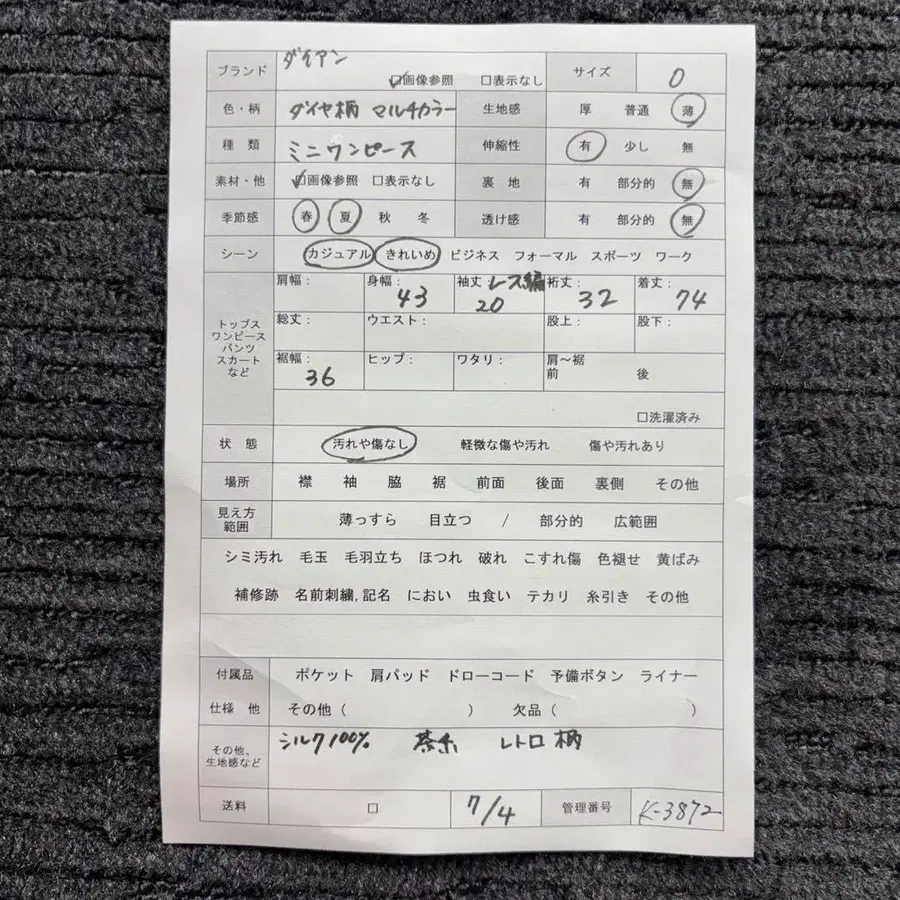 ブランド ダイアン ☑画像参照 □表示なし サイズ 0
色・柄 ダイヤ柄 マルチカラー 生地感 厚 普通 薄
種類 ミニワンピース 伸縮性 有 少し 無
素材・他 ☑画像参照 □表示なし 裏地 有 部分的 無
季節感 春 夏 秋 冬 透け感 有 部分的 無
シーン カジュアル きれいめ ビジネス フォーマル スポーツ ワーク
トップス
ワンピース
パンツ
スカート
など
肩幅: 身幅: 43 袖丈: レース編 20 裄丈: 32 着丈: 74
総丈: ウエスト: 股上: 股下:
裾幅: 36 ヒップ: ワタリ: 肩〜裾 前 後
□洗濯済み
状態 汚れや傷なし 軽微な傷や汚れ 傷や汚れあり
場所 襟 袖 脇 裾 前面 後面 裏側 その他
見え方
範囲
薄っすら 目立つ / 部分的 広範囲
シミ汚れ 毛玉 毛羽立ち ほつれ 破れ こすれ傷 色褪せ 黄ばみ
補修跡 名前刺繍,記名 におい 虫食い テカリ 糸引き その他
付属品 ポケット 肩パッド ドローコード 予備ボタン ライナー
仕様 他 その他( ) 欠品( )
その他、
生地感など
シルク100% 茶系 レトロ柄
送料 □ 7/4 管理番号 K-3872